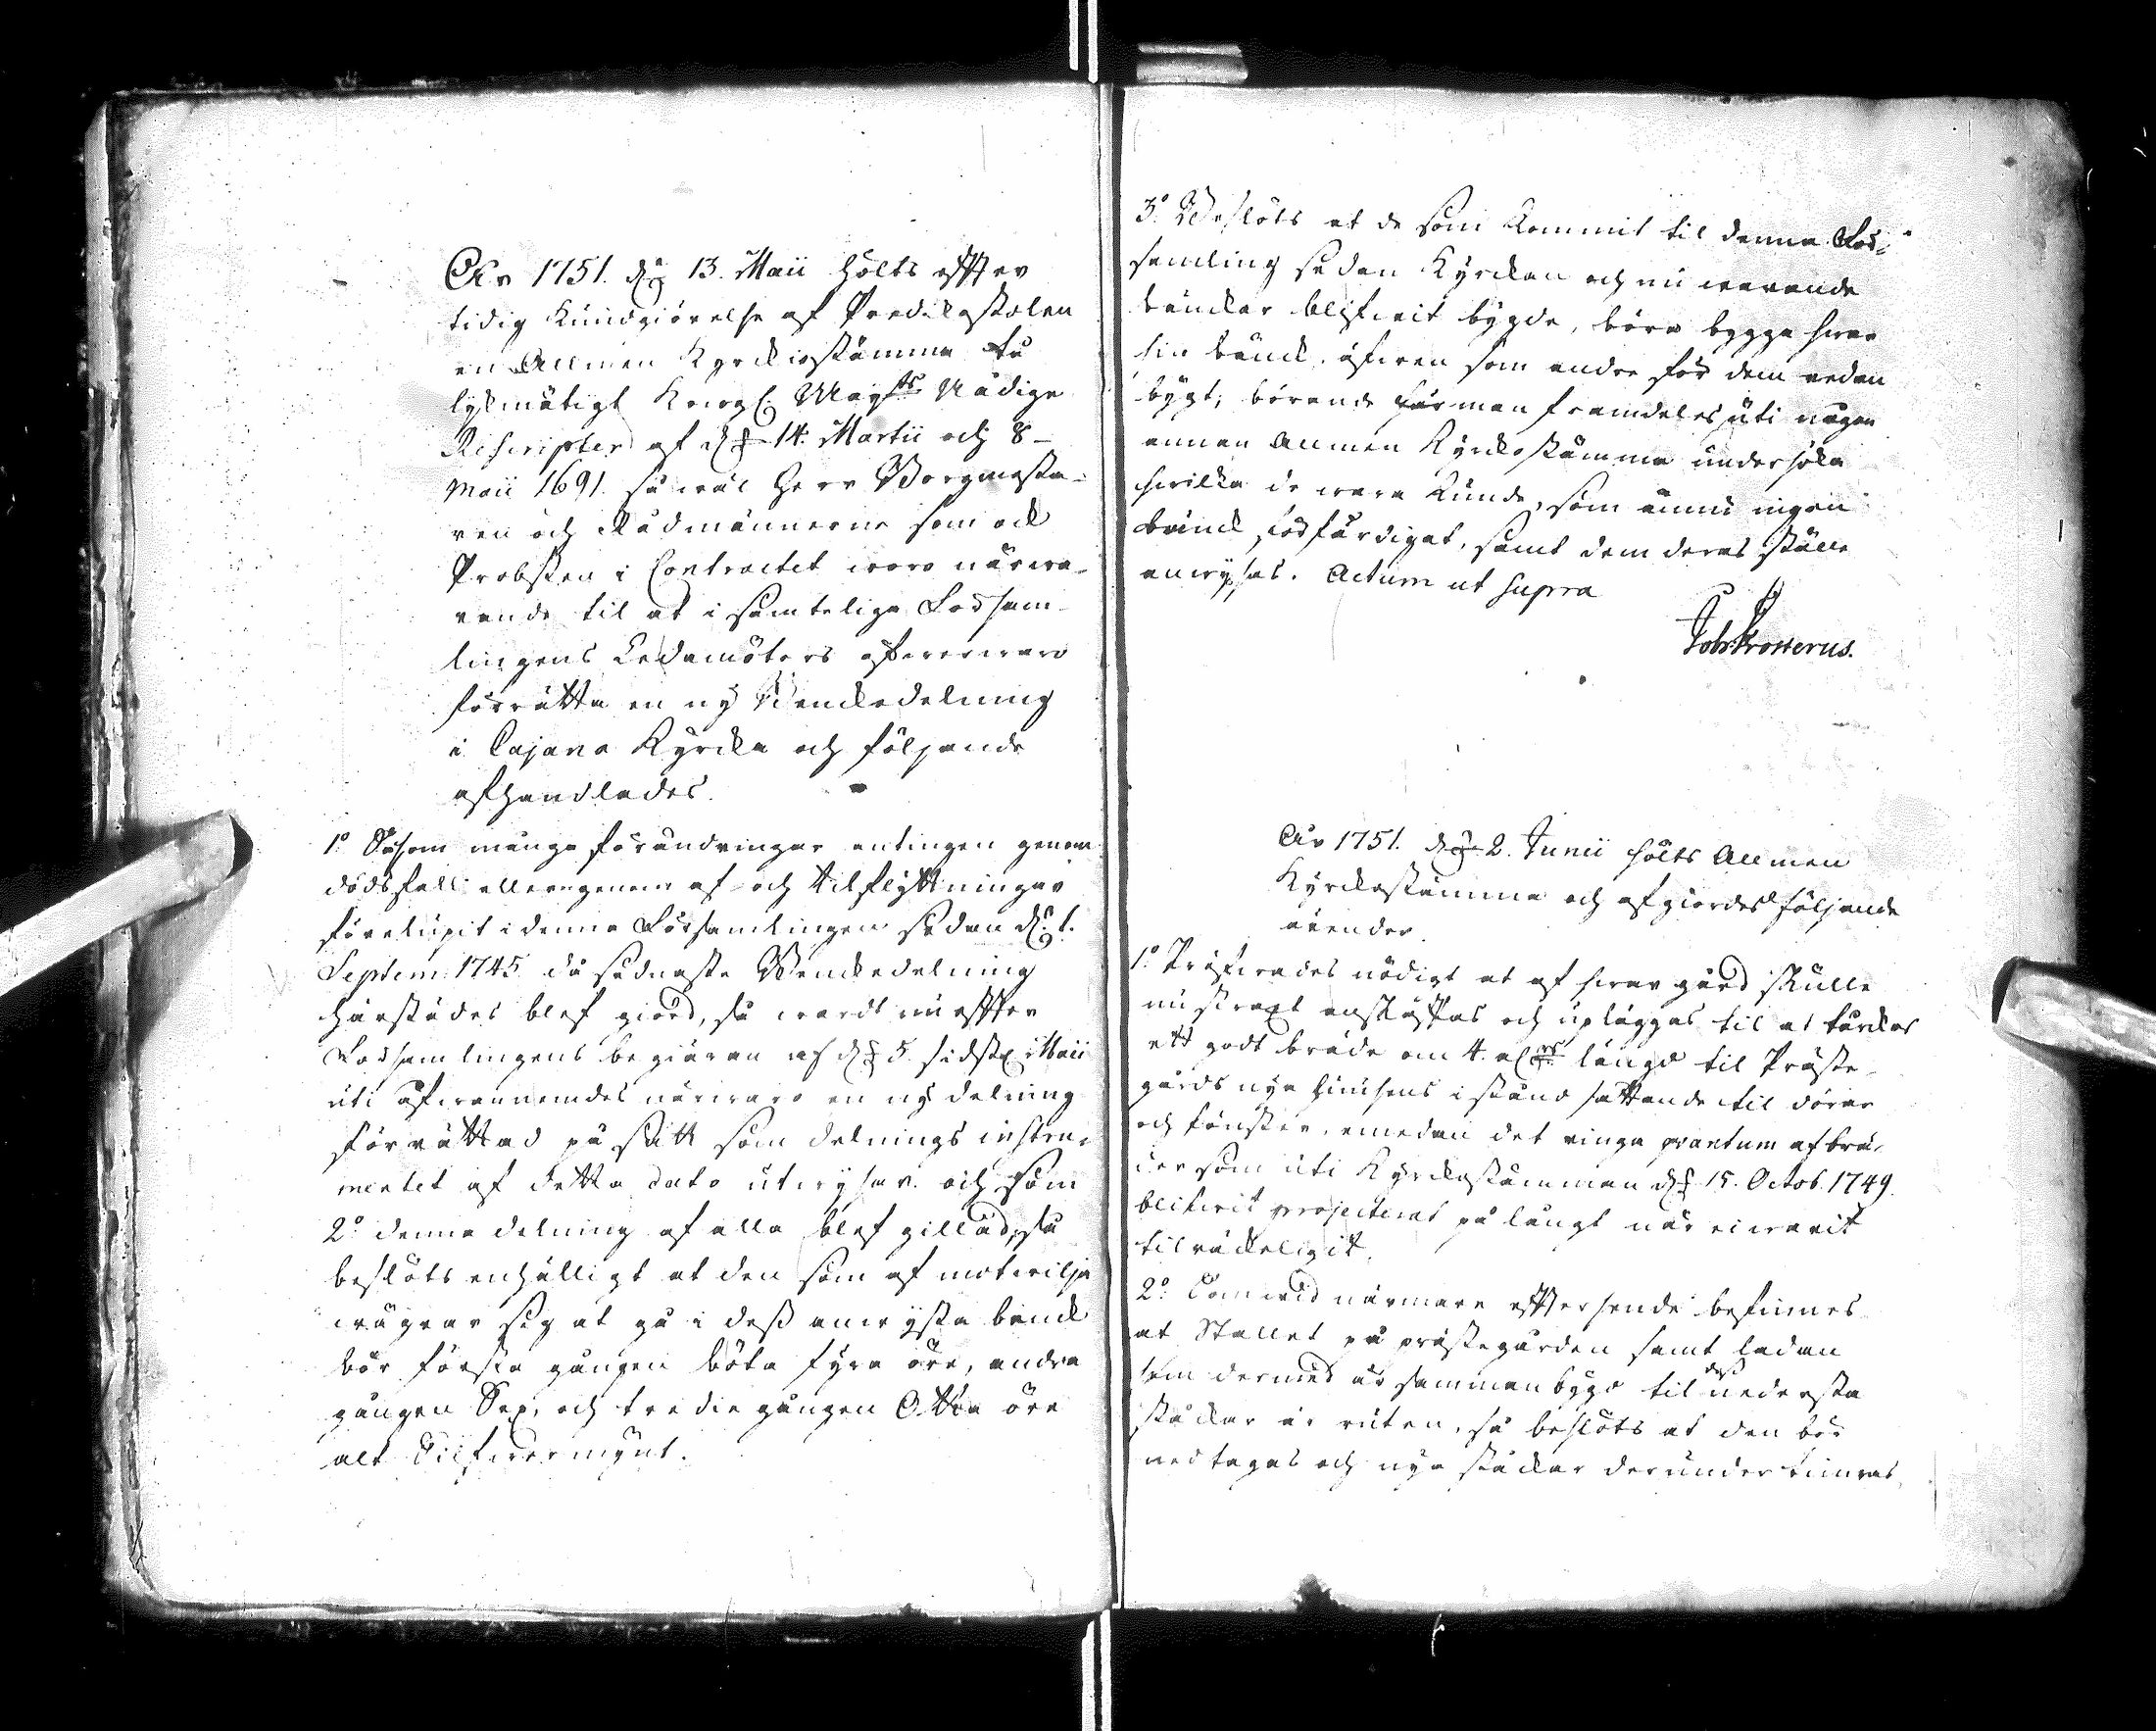 År 1751. d. 13. Maii hölts effter
tidig kundgiörelse af Predikostolen
en Allmen Kyrckiostämma tå
lykmätigt Kongl: Maysts Nådiga
Rescripter af d. 14. Martii och 8
Maii 1691. så wäl Herr Borgmesta-
ren och Rådmännerne som ock
Probsten i Contractet woro närwa-
rande til at i samtelige Församm-
lingens Ledamöters öfwerwaro
förrätta en ny Benckedelning
i Cajana Kyrcka och följande
afhandlades.
1o Såsom många förändringar antingen genom
dödsfall eller genom af- och tilflyttningar
förelupit i denna Församlingen sedan d. 1.
Septem: 1745. då sednaste Benckedelning
härstädes blef giord, så wardt nu effter
Församlingens begiäran af d. 5. sidstl. Maii
uti ofwannemdes närwaro en ny delning
förrättad på sätt som delnings instru-
mentet af detta dato utwysar. och som
2o denna delning af alla blef gillad, så
beslöts enhälligt at den som af motwilja
wägrar sig at gå i dess anwysta bänck
bör första gången böta fyra öre, andra
gången Sex, och tredie gången Otta öre
alt Silfwermynt.
3o Beslöts at de som kommit til denna För-
samling sedan Kyrckan och nu warande
bänckar blifwit bygde, böra bygga hwar
sin bänck, äfwen som andre för dem redan
bygt, börande man framdeles uti någon
annan Allmen Kyrckostämma undersöka
hwilka de wara kunde, som ännu ingen
bänck förfärdigat, samt dem deras ställe
anwysas. Actum ut supra
Joh: Frosterus.
År 1751. d. 2. Junii hölts Allmen
Kyrckostämma och afgiordes följande
ärender.
1o Pröfwades nödigt at af hwar gård skulle
nu straxt anskaffas och upläggas til at torckas
ett godt bräde om 4. alnrs längd til Präste-
gårds nya hussens i stånd sättande til dörar
och fönster, emedan det ringa quantum af brä-
der som uti Kyrckostämman d. 15. Octob. 1749.
blifwit projecterat på långt när ei warit
tilräckeligit.
2o Som wid närmare effterseende befinnes
at Stallet på prästegården samt ladan
som dermed är sammanbygd til dess nedersta
stäckar är ruten, så beslöts at den bör
nedtagas och nya stäckar derunder timras,